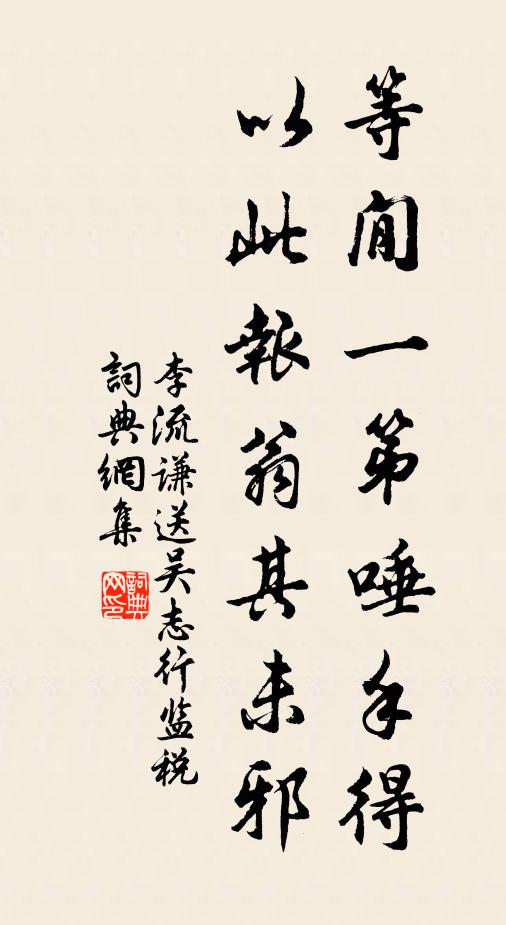 等閒一第唾手得
以此報翁其未邪
李流謙送吴志行监税
詞典網集
詞典网印